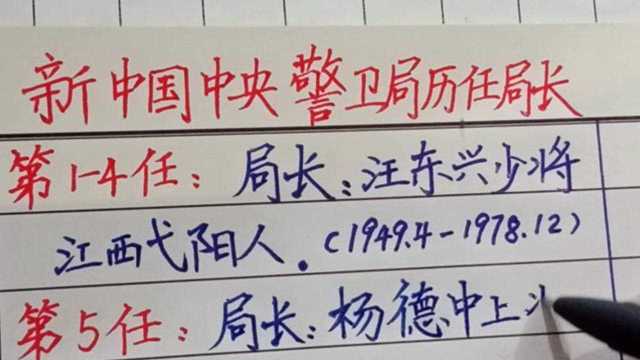 新中国中央警卫局历任局长
第1-4任：局长：汪东兴少将
江西弋阳人.（1949.4-1978.12）
第5任：局长：杨德中上